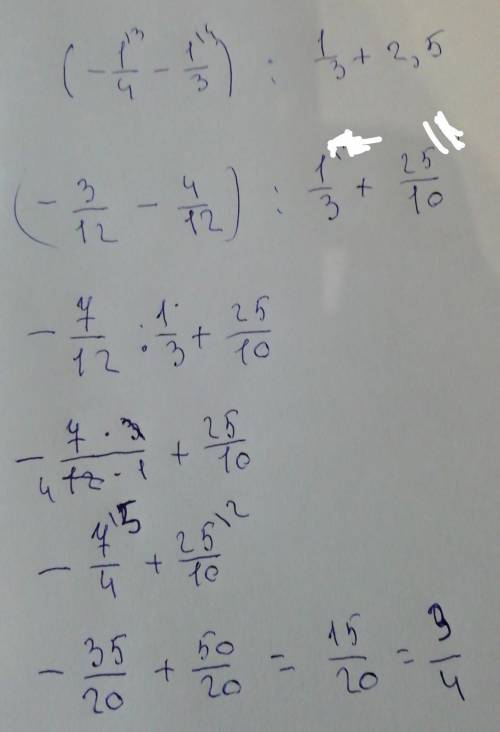 (- 1\3/4 - 1\4/3) : 1/3 + 2,5
(- 3/12 - 4/12) : 1/3 + 25/10
- 7/12 : 1/3 + 25/10
- 7 · 3/12 · 1 4 + 25/10
- 7\5/4 + 25\2/10
- 35/20 + 50/20 = 15/20 = 3/4